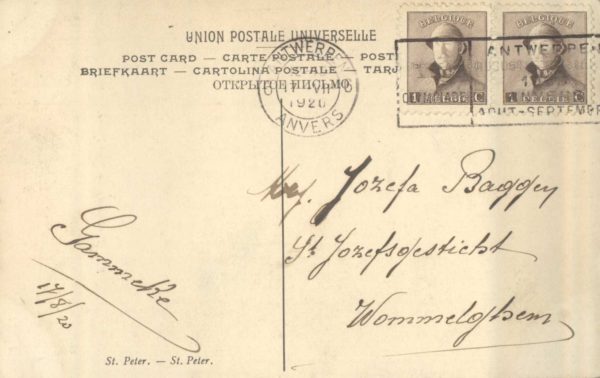 UNION POSTALE UNIVERSELLE
POST CARD — CARTE POSTALE — POST
BRIEFKAART — CARTOLINA POSTALE — TARJ
ОТКРЫТОЕ ПИСЬМО
ANTWERPEN
17 VII
1920
ANVERS
BELGIQUE
1 C
BELGIQUE
BELGIË
1 C
ANTWERPEN
AOUT-SEPTEMBRE
Mej. Jozefa Baggen
St Jozefsgesticht
Wommelghem
Gammeke
17/8/20
St. Peter. — St. Peter.